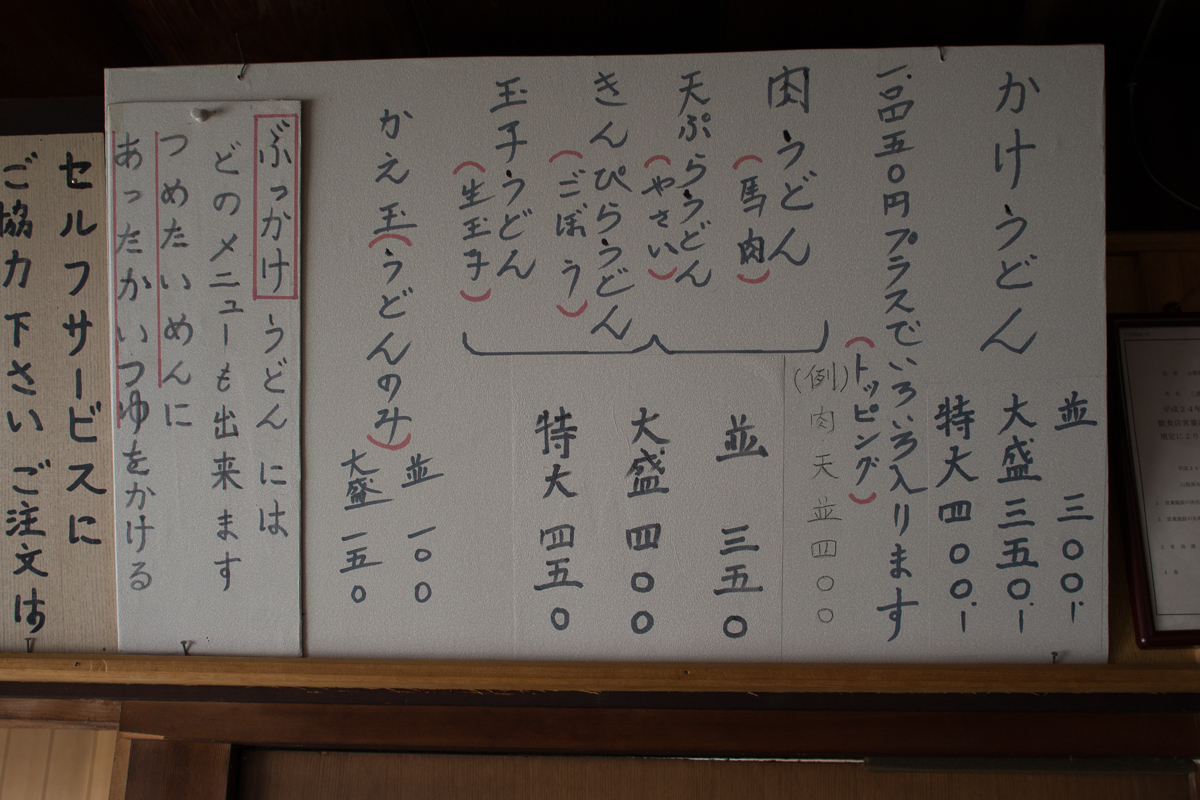 かけうどん
並 三〇〇
大盛 三五〇
特大 四〇〇
一品五〇円プラスでいろいろ入ります
(トッピング)
(例)肉天並四〇〇
肉うどん
(馬肉)
天ぷらうどん
(やさい)
きんぴらうどん
(ごぼう)
玉子うどん
(生玉子)
並 三五〇
大盛 四〇〇
特大 四五〇
かえ玉(うどんのみ)
並 一〇〇
大盛 一五〇
ぶっかけうどんには
どのメニューも出来ます
つめたいめんに
あったかいつゆをかける
セルフサービスに
ご協力下さいご注文は